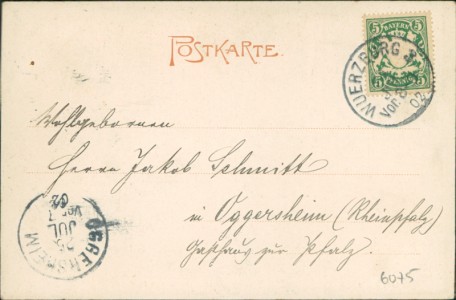 POSTKARTE.
5 BAYERN 5
PFENNIG
WUERZBURG
Vor.
02
Wohlgeboren
Herrn Jakob Schmitt
in Oggersheim (Rheinpfalz)
Gasthaus zur Pfalz.
OGGERSHEIM
JUL
Vor.
02
6075